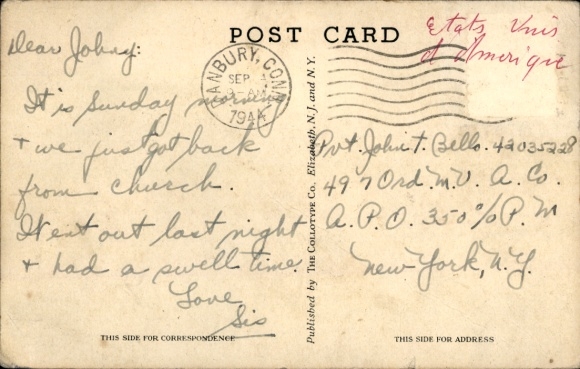 POST CARD
Etats Unis
d'Amerique
DANBURY, CONN.
SEP 4
AM
1944
Dear Johny:
It is Sunday morning
+ we just got back
from church.
Went out last night
+ had a swell time.
Love
Sis
THIS SIDE FOR CORRESPONDENCE
Published by THE COLLOTYPE CO. Elizabeth, N. J. and N. Y.
Pvt. John T. Bello. 42035228
497 Ord. M. V. A. Co.
A. P. O. 350 % P. M
New York, N. Y.
THIS SIDE FOR ADDRESS